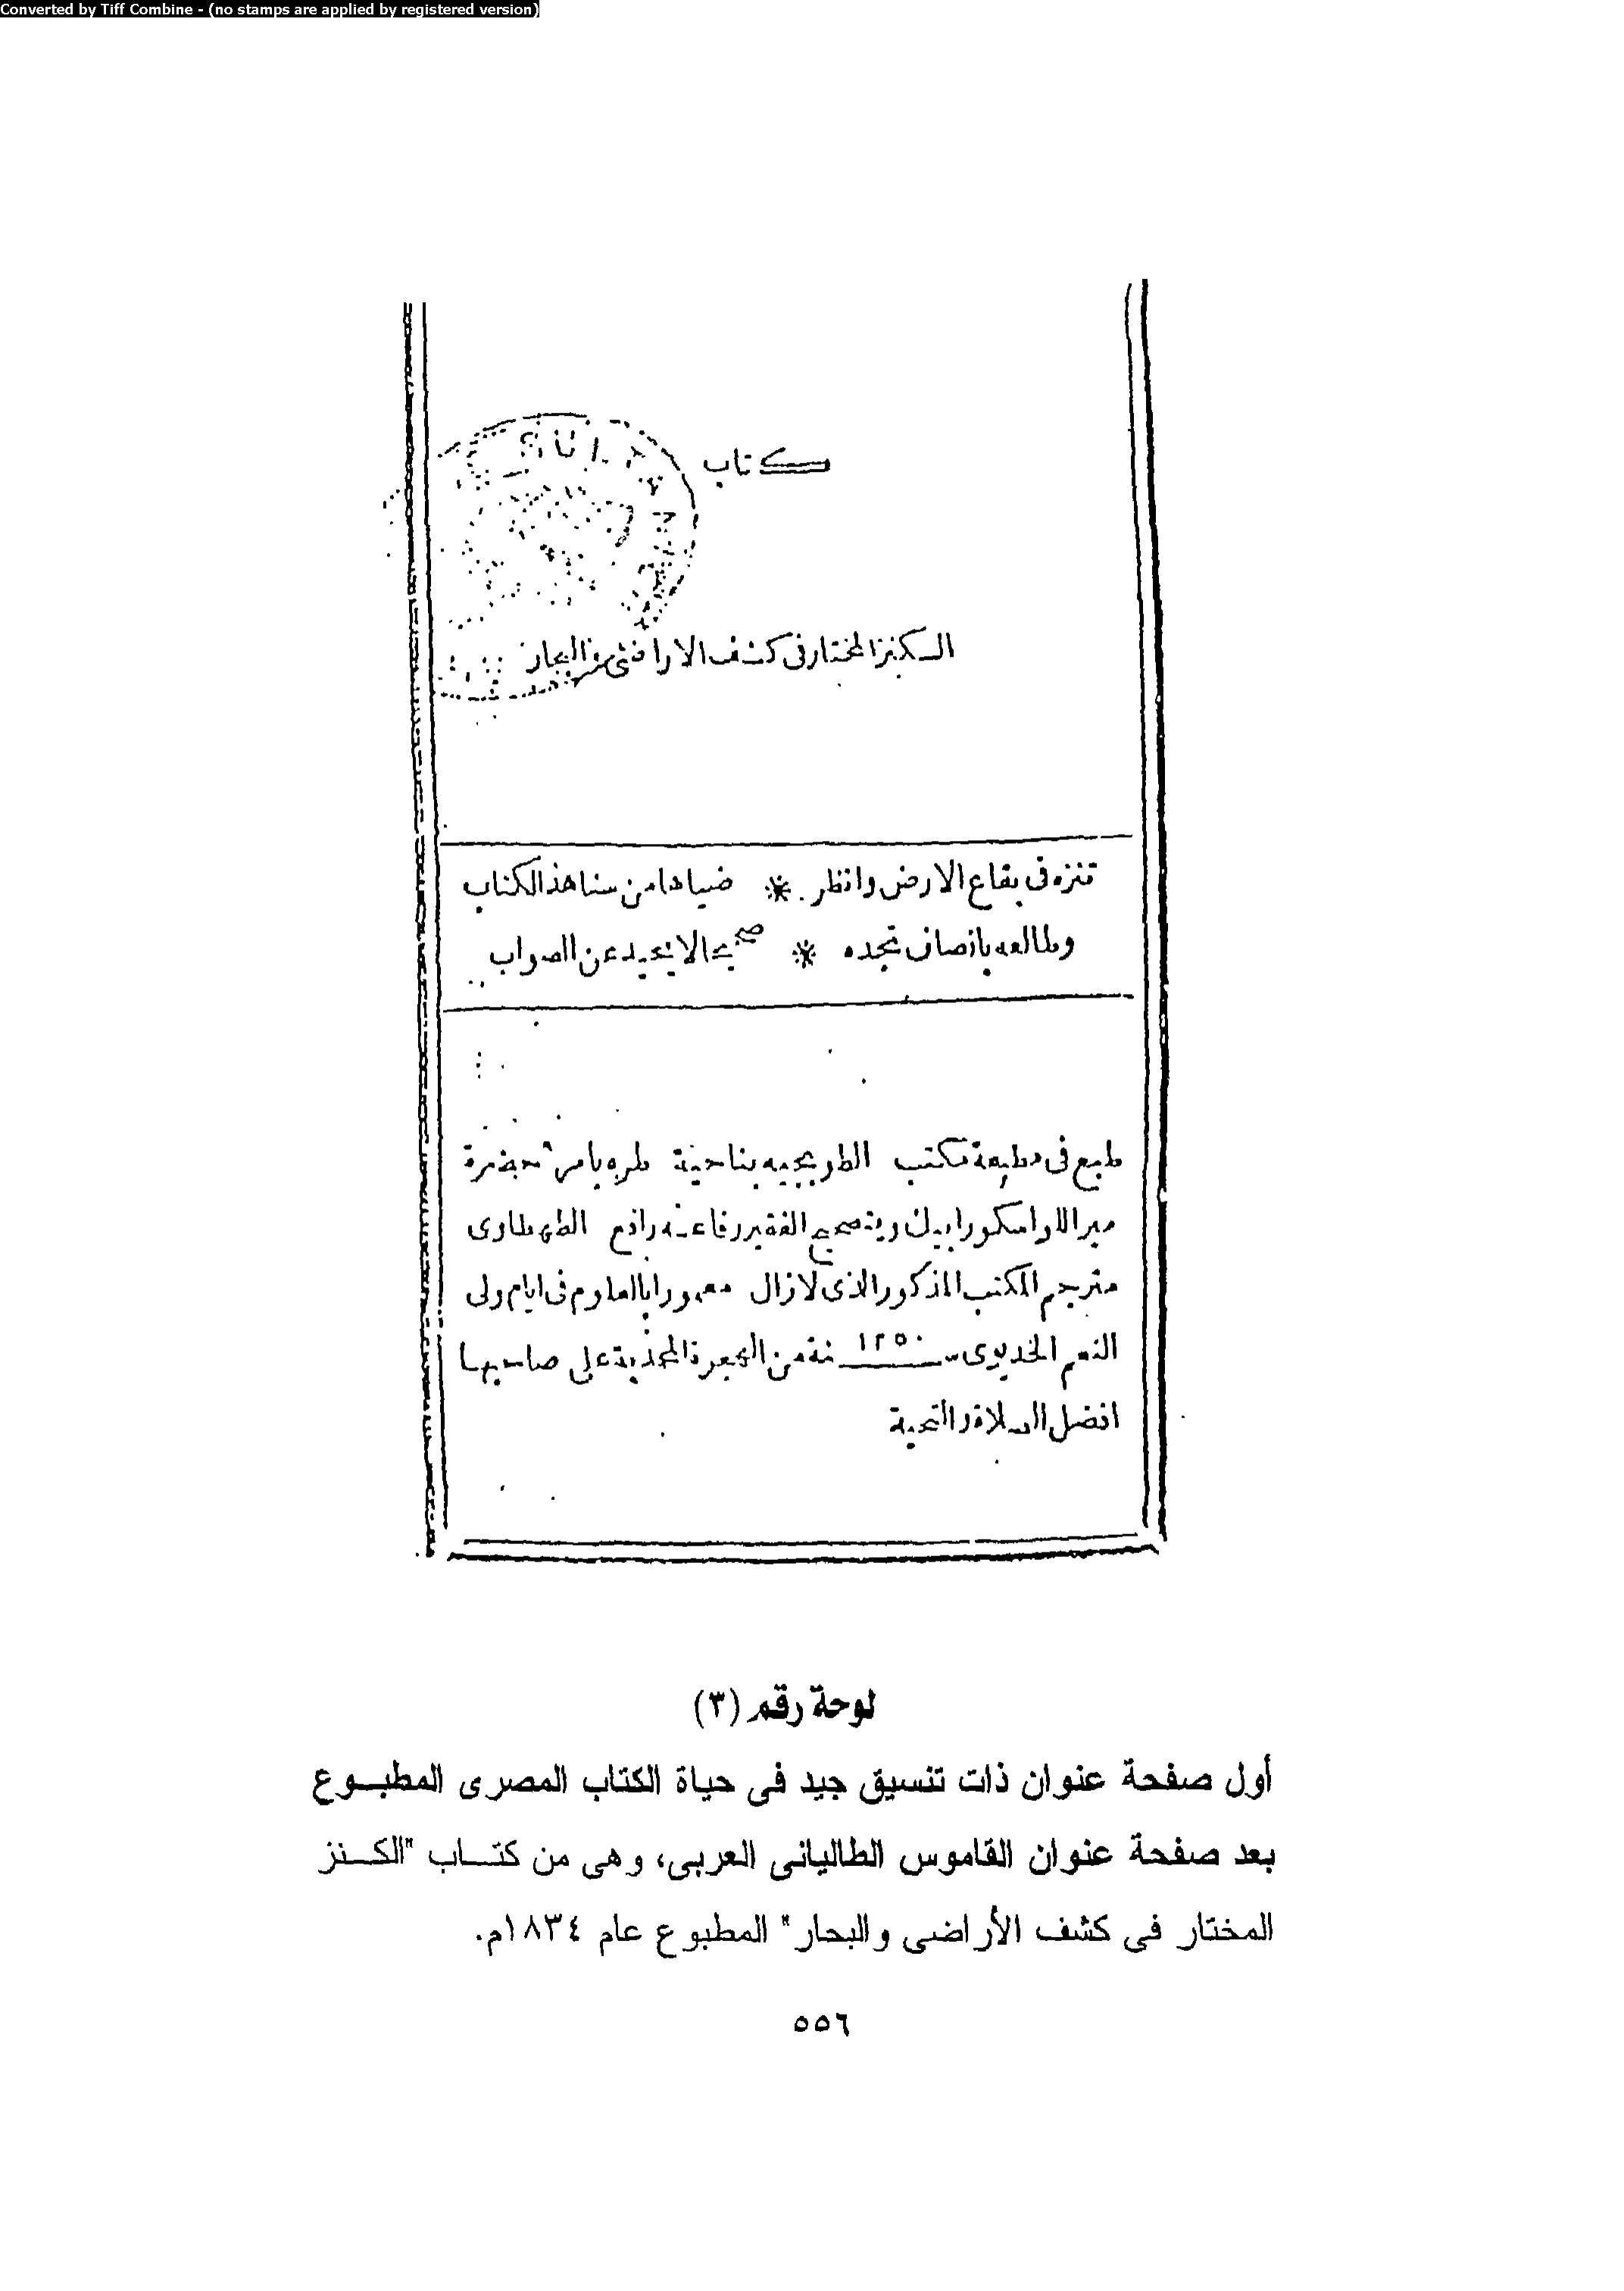 Converted by Tiff Combine - (no stamps are applied by registered version)
كتاب
الكنز المختار فى كشف الاراضى والبحار
تنزه فى بقاع الارض وانظر * ضياها من سنا هذ الكتاب
وطالعه بانصاف تجده * صحيحا لا يحيد عن الصواب
طبع فى مطبعة مكتب الطوبجيه بناحية طره بامر حضرة
ميراللوا سكورا بيك وبتصحيح الفقير رفاعه رافع الطهطاوى
مترجم المكتب المذكور الذى لازال معمورا بالعلوم فى ايام ولى
النعم الخديوى سنة ١٢٥٠ من الهجرة المحمدية على صاحبها
افضل الصلاة والتحية
لوحة رقم (٣)
أول صفحة عنوان ذات تنسيق جيد فى حياة الكتاب المصرى المطبوع
بعد صفحة عنوان القاموس الطاليانى العربى، وهى من كتاب "الكنز
المختار فى كشف الأراضى والبحار" المطبوع عام ١٨٣٤م.
٥٥٦